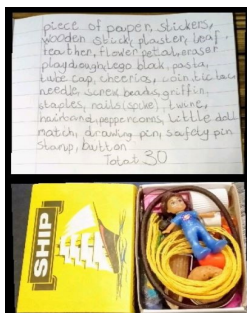 piece of paper, stickers,
wooden stick, plaster, leaf,
feather, flower petal, eraser
playdough, lego block, pasta,
tube cap, cheerios, coin, tic tac,
needle, screw, beads, griffin,
staples, nails (spike), twine,
hairband, peppercorns, little doll
match, drawing pin, safety pin
stamp, button
Total 30
SHIP